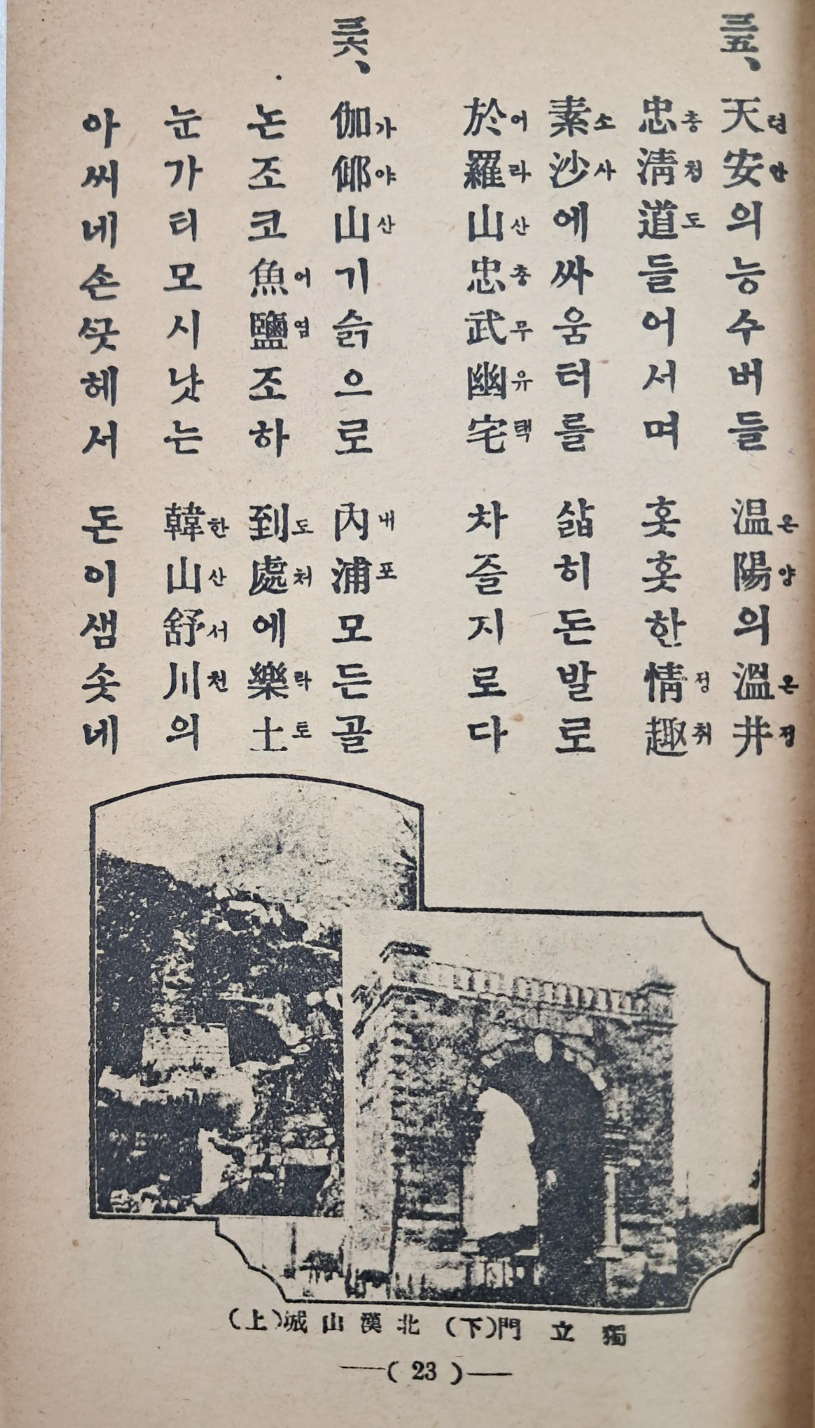 三五、
天安의능수버들 温陽의溫井
텬안 온양 온졍
忠淸道들어서며 홋홋한情趣
충청도 졍취
素沙에싸움터를 삷히돈발로
소사
於羅山忠武幽宅 차즐지로다
어라산충무유택
三六、
伽倻山기슭으로 內浦모든골
가야산 내포
논조코魚鹽조하 到處에樂土
어염 도처 락토
눈가티모시낫는 韓山舒川의
한산서천
아씨네손끗헤서 돈이샘솟네
(上)城山漢北 (下)門立獨
—( 23 )—